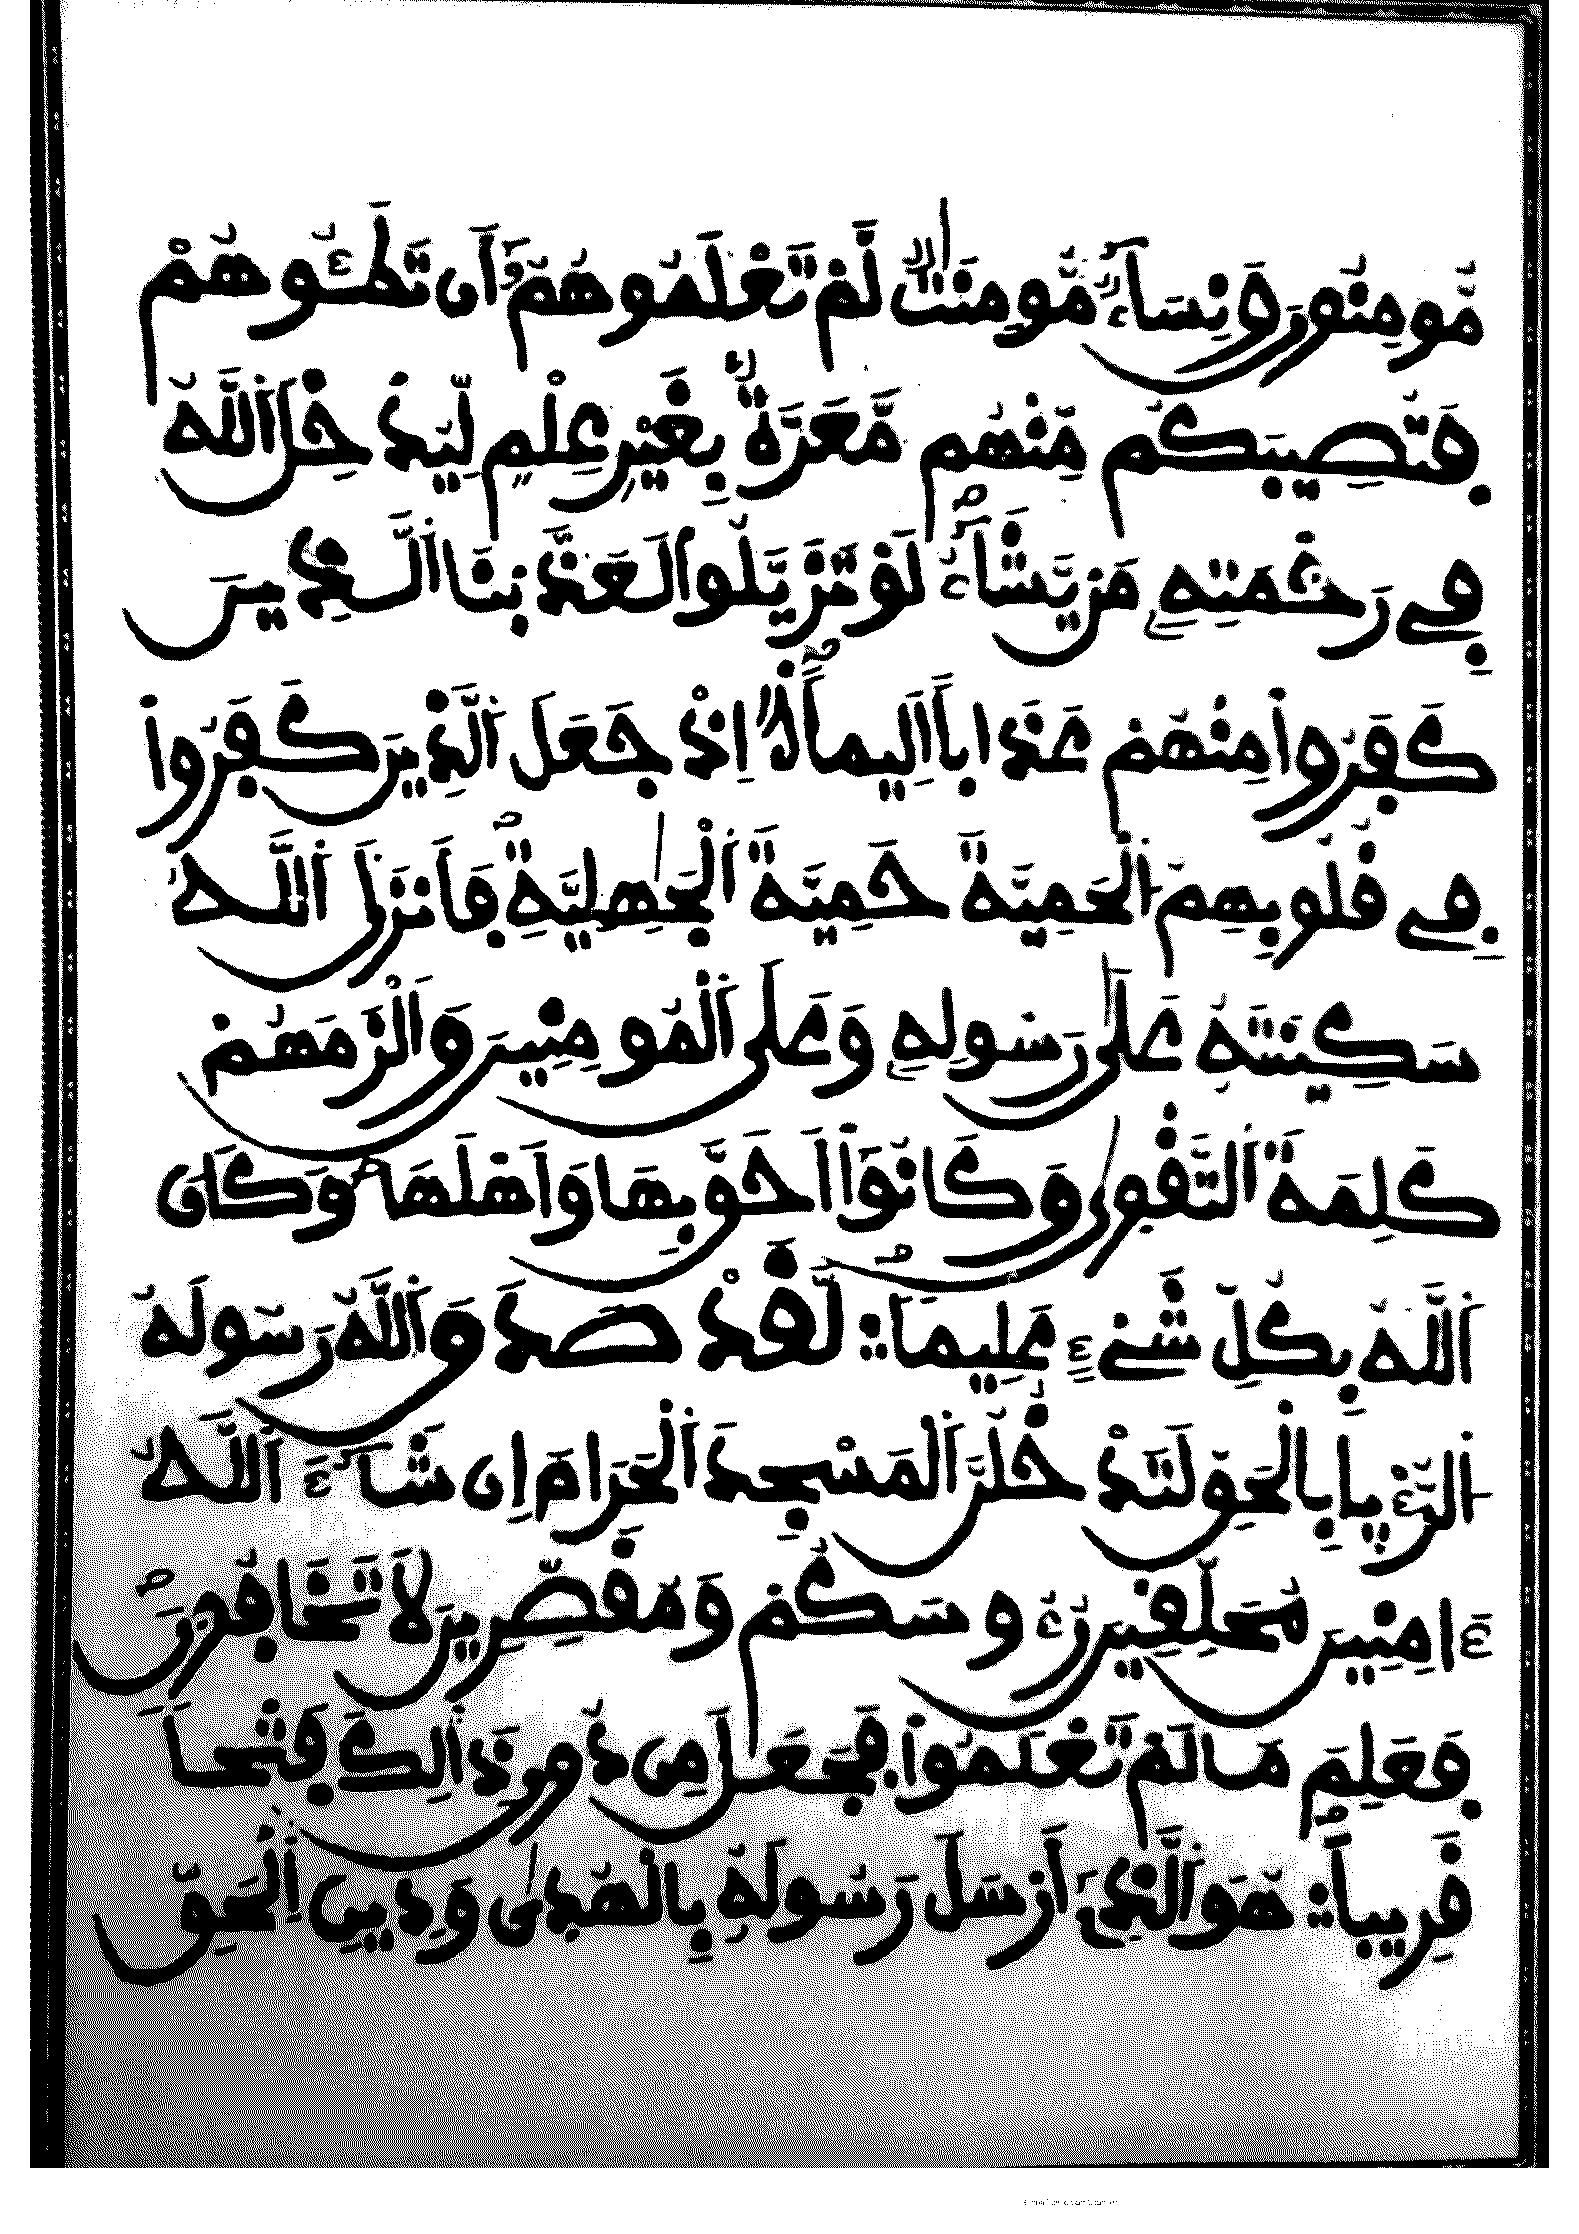 مُّومِنُونَ وَنِسَآءٞ مُّومِنَٰتٞ لَّمْ تَعْلَمُوهُمُۥٓ أَن تَطَـُٔوهُمْ
فَتُصِيبَكُم مِّنْهُم مَّعَرَّةُۢ بِغَيْرِ عِلْمٖ لِّيُدْخِلَ اَ۬للَّهُ
فِے رَحْمَتِهِۦ مَنْ يَّشَآءُۖ لَوْ تَزَيَّلُواْ لَعَذَّبْنَا اَ۬لذِينَ
كَفَرُواْ مِنْهُمْ عَذَاباً اَلِيماًۖ اِذْ جَعَلَ اَ۬لذِينَ كَفَرُواْ
فِے قُلُوبِهِمُ اُ۬لْحَمِيَّةَ حَمِيَّةَ اَ۬لْجَٰهِلِيَّةِۖ فَأَنزَلَ اَ۬للَّهُ
سَكِينَتَهُۥ عَلَىٰ رَسُولِهِۦ وَعَلَى اَ۬لْمُومِنِينَ وَأَلْزَمَهُمْ
كَلِمَةَ اَ۬لتَّقْو۪ىٰ وَكَانُوٓاْ أَحَقَّ بِهَا وَأَهْلَهَاۖ وَكَانَ
اَ۬للَّهُ بِكُلِّ شَےْءٍ عَلِيماٗۖ لَّقَدْ صَدَقَ اَ۬للَّهُ رَسُولَهُ
اُ۬لرُّءْي۪ا بِالْحَقِّ لَتَدْخُلُنَّ اَ۬لْمَسْجِدَ اَ۬لْحَرَامَ إِن شَآءَ اَ۬للَّهُ
ءَامِنِينَ مُحَلِّقِينَ رُءُوسَكُمْ وَمُقَصِّرِينَ لَا تَخَافُونَۖ
فَعَلِمَ مَا لَمْ تَعْلَمُواْ فَجَعَلَ مِن دُونِ ذَٰلِكَ فَتْحاٗ
قَرِيباًۖ هُوَ اَ۬لذِےٓ أَرْسَلَ رَسُولَهُۥ بِالْهُد۪ىٰ وَدِينِ اِ۬لْحَقِّ